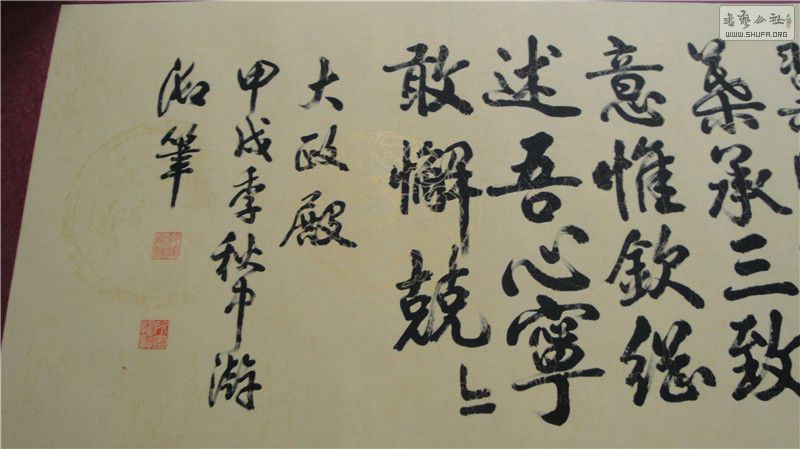 書藝公社
WWW.SHUFA.ORG
葉承三致
意惟欽繼
述吾心寧
敢懈兢〻
大政殿
甲戌季秋中澣
御筆